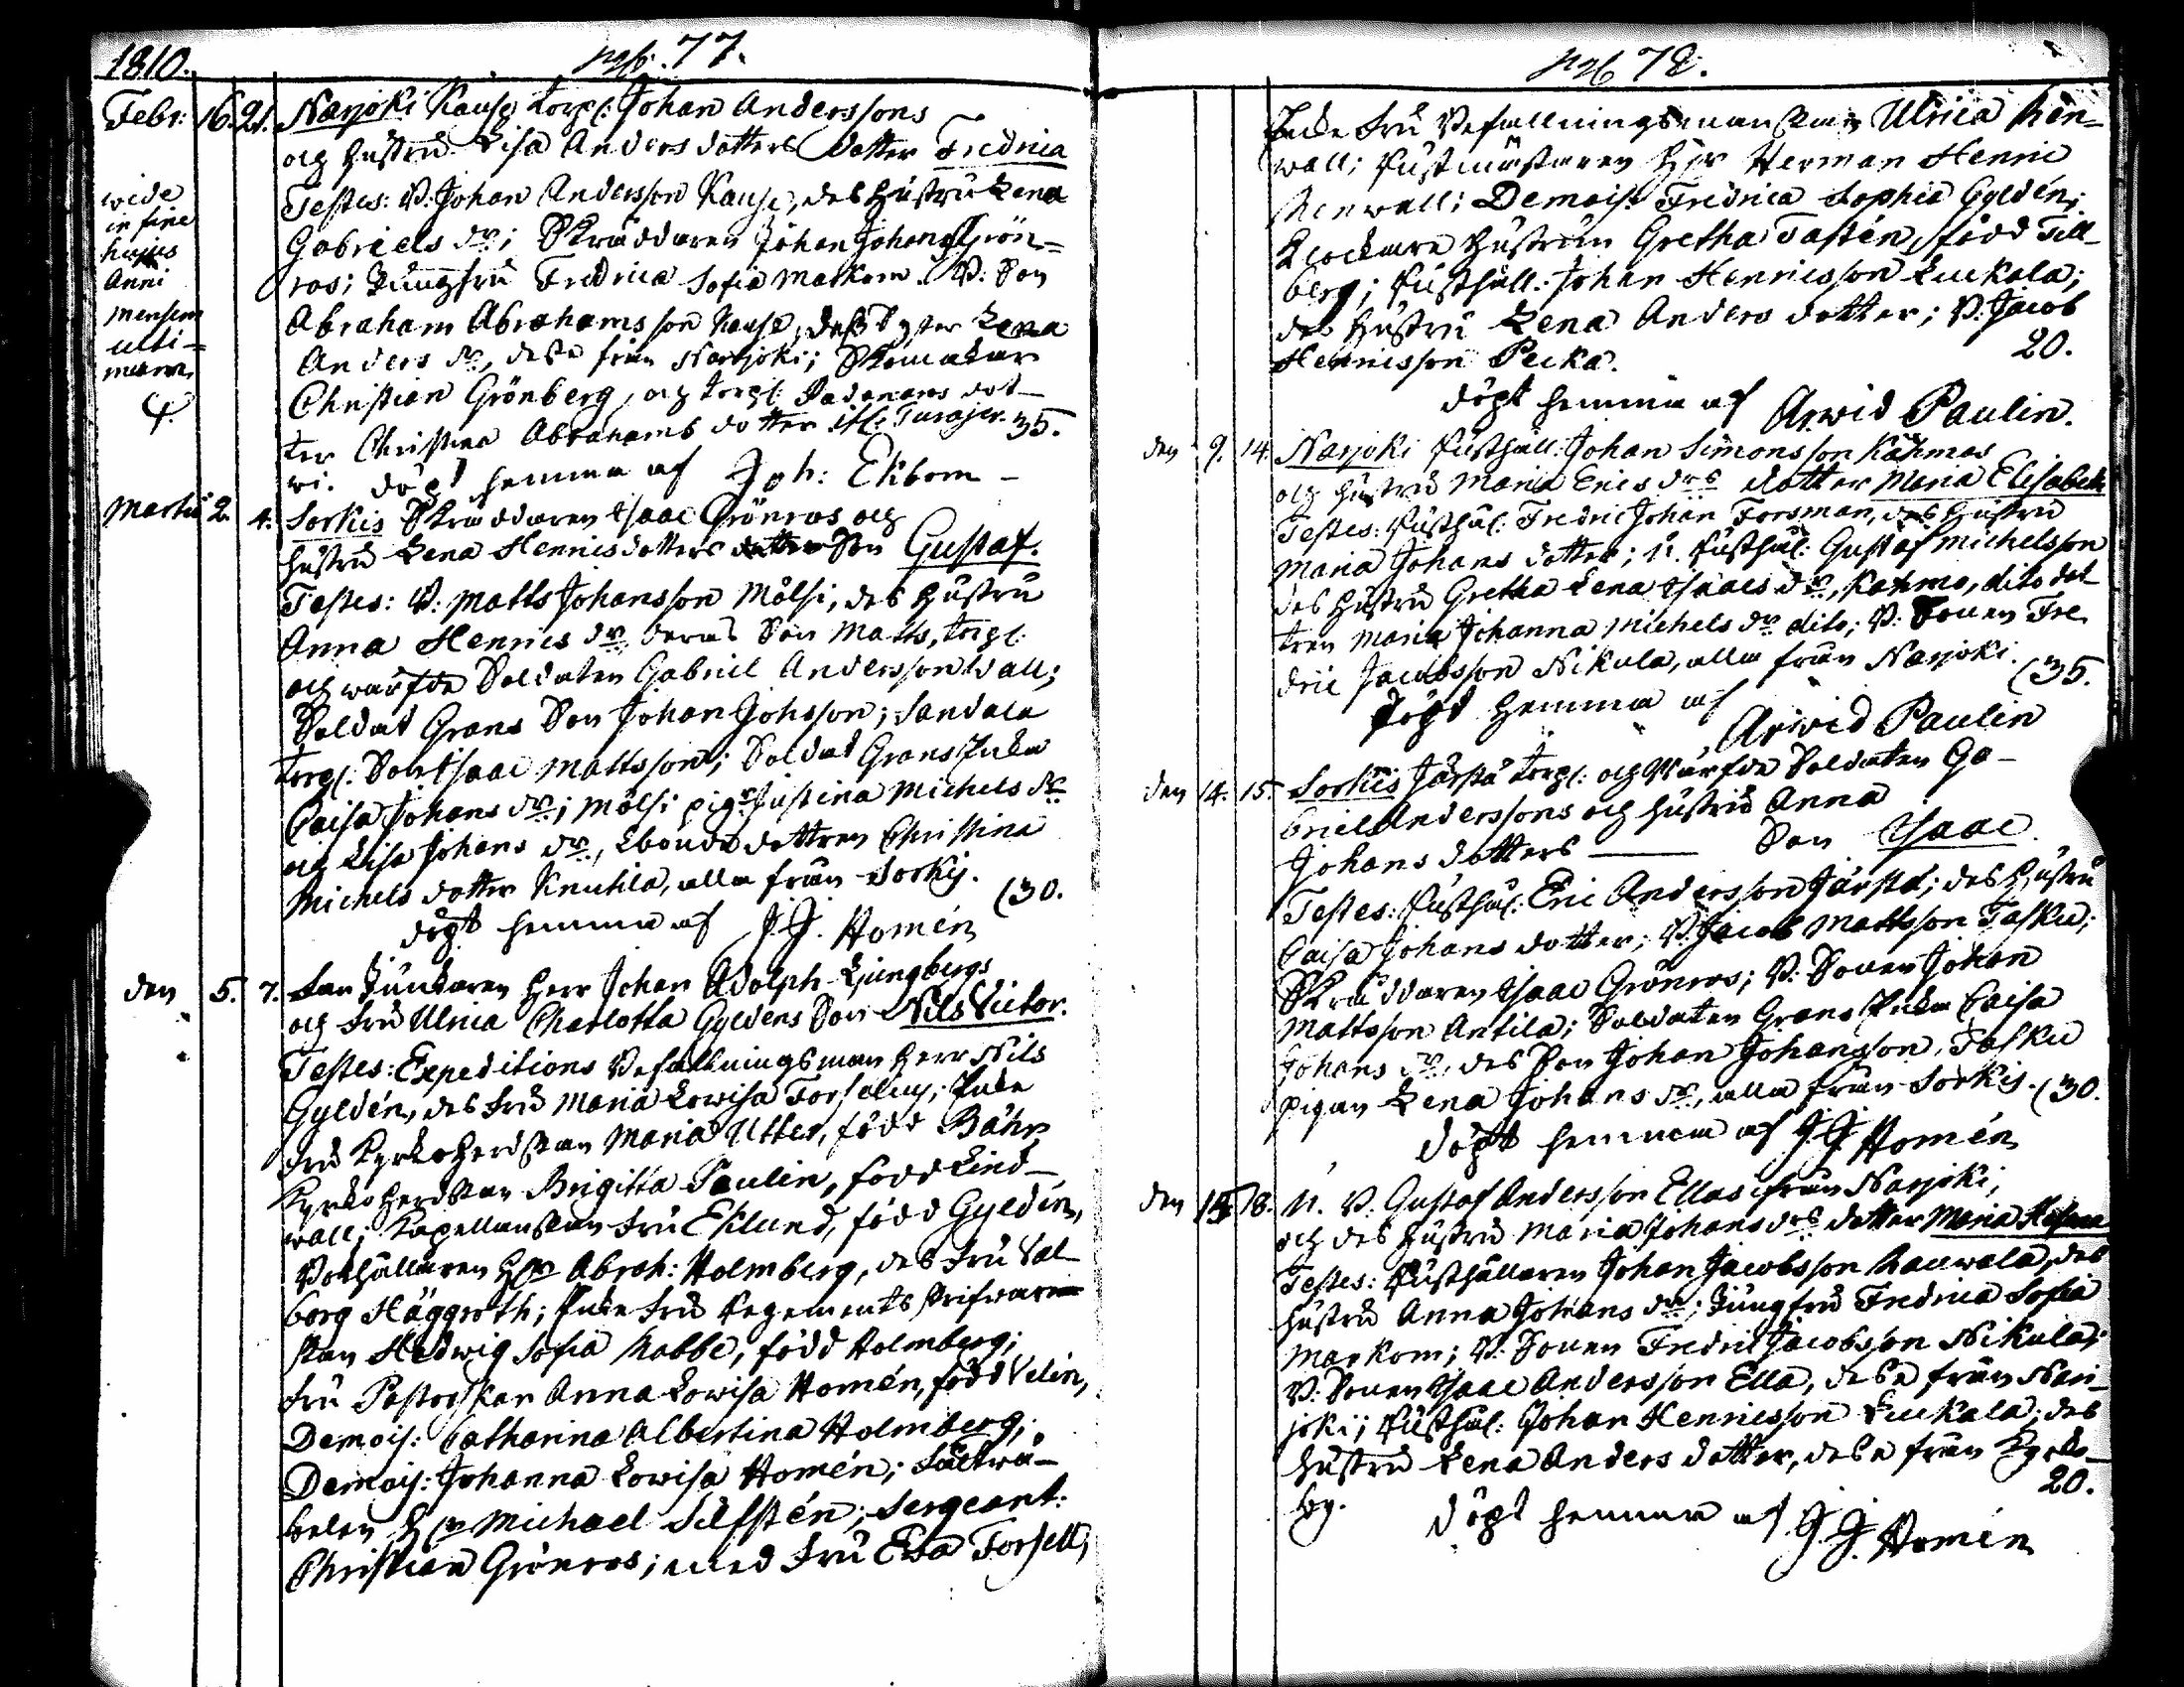 1810.
pag. 77.
Febr: 16. 21. Narjoki Kause torp: Johan Anderssons
och hustru Lisa Andersdotters dotter Fredrica
Testes: B: Johan Andersson Kause, des hustru Lena
Gabriels dr; Skräddaren Johan Johans Grön=
ros; Jungfru Fredrica Sofia Markom. B: Son
Abraham Abrahamsson Kause, des syster Lena
Anders dr, desse från Narjoki; Skomakar
Christian Grönberg, och torp: dot-
ter Christina Abrahams dotter 35.
wi. döpt hemma af Joh: Ekbom
wide
in fine
hujus
Anni
mensem
ulti-
mum
Martii 2. 4. Sorkis Skräddaren Isaac Grönros och
hustru Lena Henricsdotters Son Gustaf.
Testes: B: Matts Johansson Mälsi, des hustru
Anna Henrics dr deras Son Matts, torp:
och wärfde Soldaten Gabriel Andersson Wall;
Soldat Grans Son Johan Johsson; Sandala
torp: Son Isaac Mattsson; Soldat Grans Enka
Caisa Johans dr; Mälsi pig: Justina Michels dr
och Lisa Johans dr, Ebonde dottren Christina
Michels dotter Knutila, alla från Sorkis.
(30.
döpt hemma af J.J. Homén
den 5. 7. Fan Junkaren Herr Johan Adolph Ljungbergs
och fru Ulrica Charlotta Gyldéns Son Nils Victor.
Testes: Expeditions Befallningsman Herr Nils
Gyldén, des fru Maria Lowisa Forselius; Enke
fru Kyrkoherdskan Maria Utter, född Bähr
Kyrkoherdskan Brigitta Paulin, född Lind-
wall; Kapellanskan fru Eklund, född Gyldén,
Bokhållaren Hr Abrah: Holmberg, des fru Val
borg Häggroth; Enke fru Regements skrifware
skan Hedwig Sofia Mabbe, född Holmberg;
fru Pastorskan Anna Lowisa Homén, född Velin,
Demois: Catharina Albertina Holmberg;
Demois: Johanna Lowisa Homén; Fältwä-
belen Hr Michael Silfstén; Sergeant:
Christian Grönros; med fru Ewa Forsell;
pag 78.
Enke fru Befallningsmanskan Ulrica Ren-
wall; Rustmästaren Hr Herman Henric
Renwall; Demois: Fredrica Sophia Gyldén;
Klockare hustrun Gretha Tastén, född Till-
berg; Rusthåll: Johan Henricsson Luckala;
des hustru Lena Anders dotter; B: Jacob
Henricsson Pecka. 20.
döpt hemma af Arwid Paulin.
den 9. 14. Narjoki Rusthåll: Johan Simonsson Kähmas
och hustru Maria Erics drs dotter Maria Elisabeth
Testes: Rusthål: Fredric Johan Forsman, des hustru
Maria Johans dotter; U. Rusthål: Gustaf Michelsson
des hustru Gretha Lena Isaacs dr, Kahma, dito dot
tren Maria Johanna Michels dr dito; B: Sonen Fre
dric Jacobsson Nikula, alla från Narjoki. (35.
döpt hemma af
Arwid Paulin
den 14. 15. Sorkis Järstä torp: och Wärfde Soldaten Ga-
briel Anderssons och hustru Anna
Johans dotters Son Isaac.
Testes: Rusthål: Eric Andersson Järstä; des hustru
Caisa Johans dotter; B: Jacob Mattsson Tasku;
Skräddaren Isaac Grönros; B: Sonen Johan
Mattsson Antila; Soldaten Grans Enka Caisa
Johans dr, des Son Johan Johansson, Tasku
pigan Lena Johans dr, alla från Sorkis. (30.
döpt hemma af J J Homén
den 15. 18. U. B. Gustaf Andersson Ellas från Narjoki,
och des hustru Maria Johans drs dotter Maria
Testes: Rusthållaren Johan Jacobsson Rauwala, des
hustru Anna Johans dr; Jungfru Fredrica Sofia
Markom; B: Sonen Fredric Jacobsson Nikula;
B: Sonen Isaac Andersson Ella, desse från Nar-
joki; Rusthål: Johan Henricsson Luckala; des
hustru Lena Anders dotter, desse från Kyrko-
by. 20.
döpt hemma af J. J. Homén